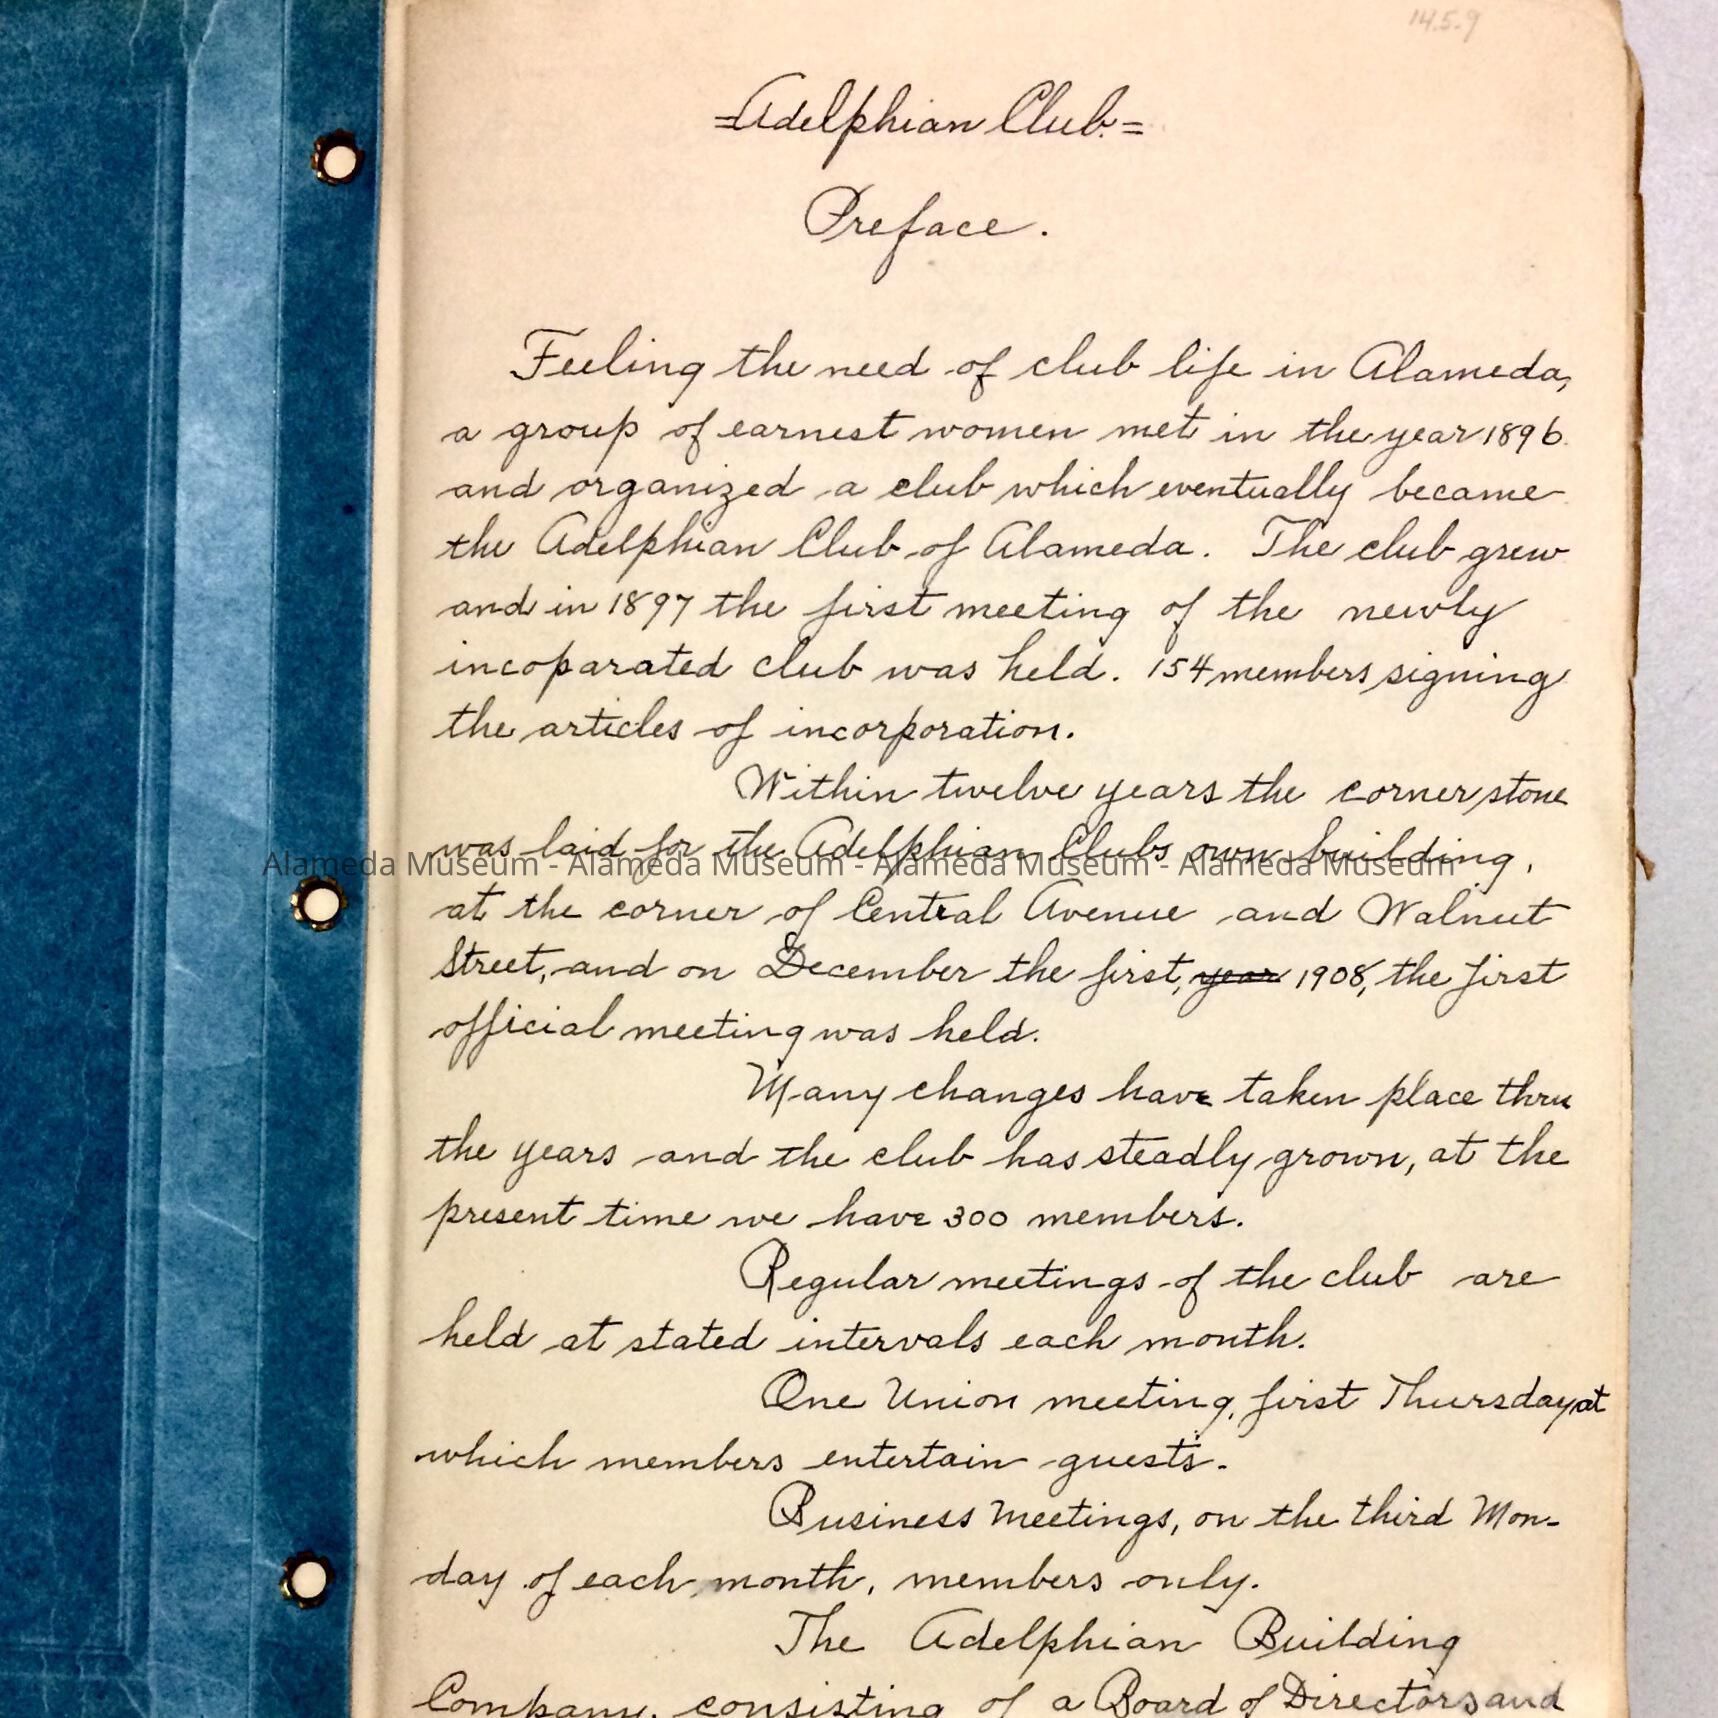 14.5.9
=Adelphian Club.=
Preface.
Feeling the need of club life in Alameda,
a group of earnest women met in the year 1896
and organized a club which eventually became
the Adelphian Club of Alameda. The club grew
and in 1897 the first meeting of the newly
incoparated club was held. 154 members signing
the articles of incorporation.
Within twelve years the corner stone
was laid for the Adelphian Clubs own building,
Alameda Museum - Alameda Museum - Alameda Museum - Alameda Museum
at the corner of Central Avenue and Walnut
Street, and on December the first, year 1908, the first
official meeting was held.
Many changes have taken place thru
the years and the club has steadly grown, at the
present time we have 300 members.
Regular meetings of the club are
held at stated intervals each month.
One Union meeting, first Thursday at
which members entertain guests.
Business Meetings, on the third Mon-
day of each month, members only.
The Adelphian Building
Company, consisting of a Board of Directors and